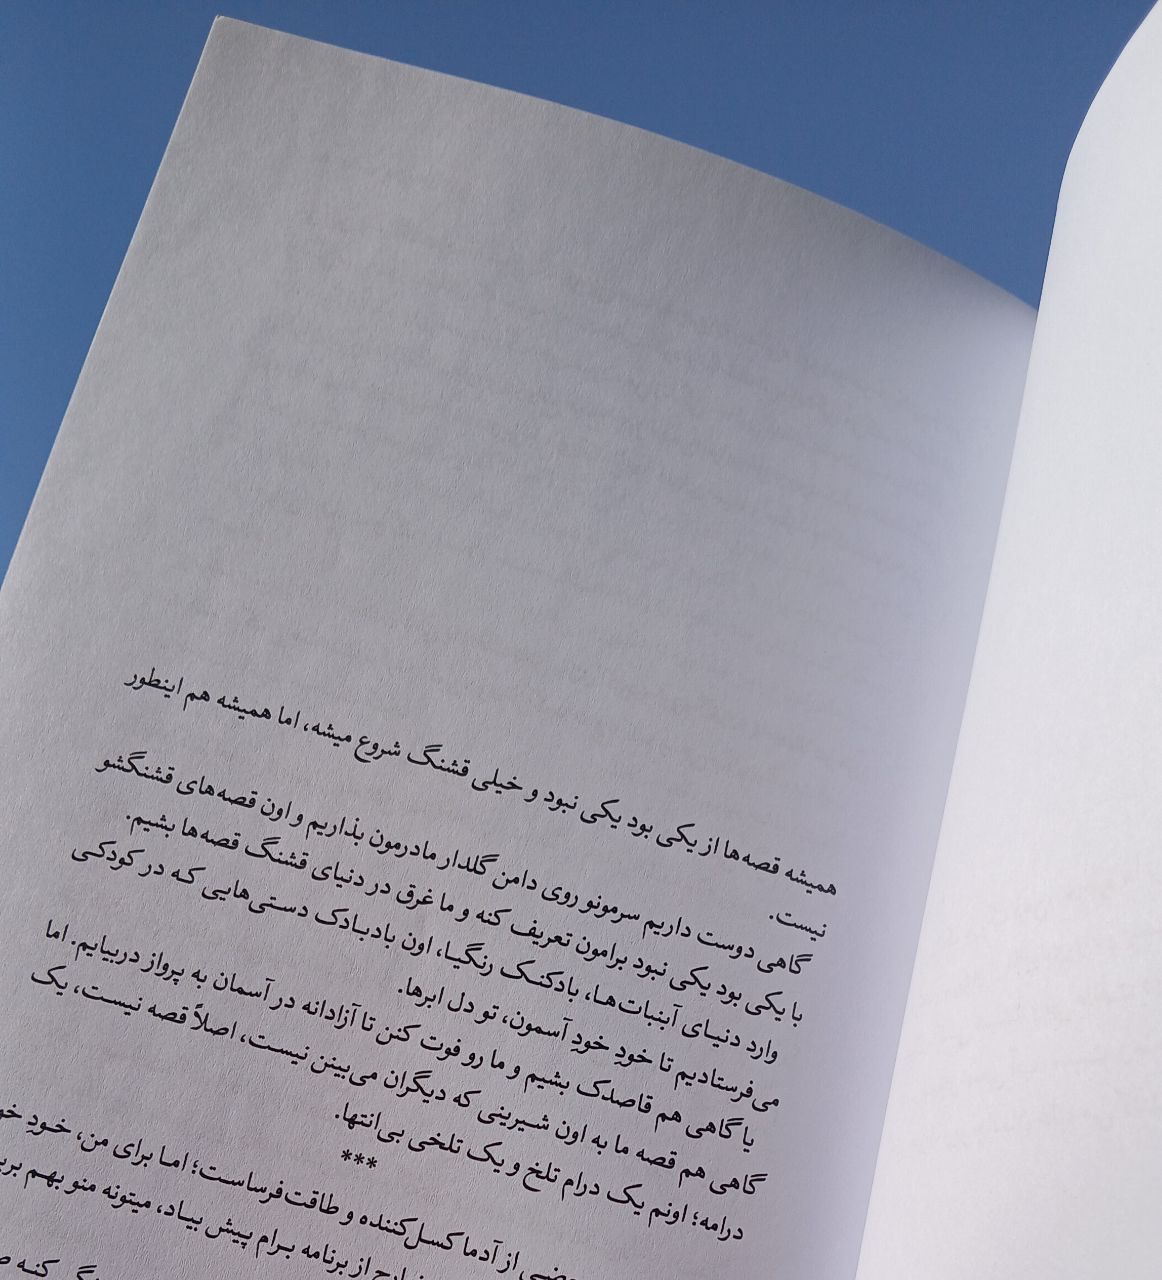 همیشه قصه‌ها از یکی بود یکی نبود و خیلی قشنگ شروع میشه، اما همیشه هم اینطور
نیست.
گاهی دوست داریم سرمونو روی دامن گلدار مادرمون بذاریم و اون قصه‌های قشنگشو
با یکی بود یکی نبود برامون تعریف کنه و ما غرق در دنیای قشنگ قصه‌ها بشیم.
وارد دنیای آبنبات‌ها، بادکنک رنگیا، اون بادبادک دستی‌هایی که در کودکی
می‌فرستادیم تا خودِ خودِ آسمون، تو دل ابرها.
یا گاهی هم قاصدک بشیم و ما رو فوت کنن تا آزادانه در آسمان به پرواز دربیایم. اما
گاهی هم قصه ما به اون شیرینی که دیگران می‌بینن نیست، اصلاً قصه نیست، یک
درامه؛ اونم یک درام تلخ و یک تلخی بی‌انتها.
***
از آدما کسل‌کننده و طاقت‌فرساست؛ اما برای من، خودِ
از برنامه برام پیش بیاد، میتونه منو بهم
کنه